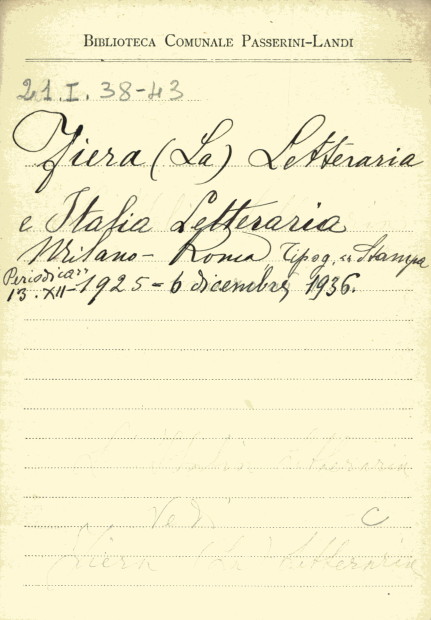 BIBLIOTECA COMUNALE PASSERINI-LANDI
21.I.38-43
Fiera (La) Letteraria
e Italia Letteraria
Milano - Roma Tipog. "Stampa
Periodica"
13.XII-1925 - 6 dicembre 1936.
Italia Letteraria
Vedi C
Fiera (La) Letteraria